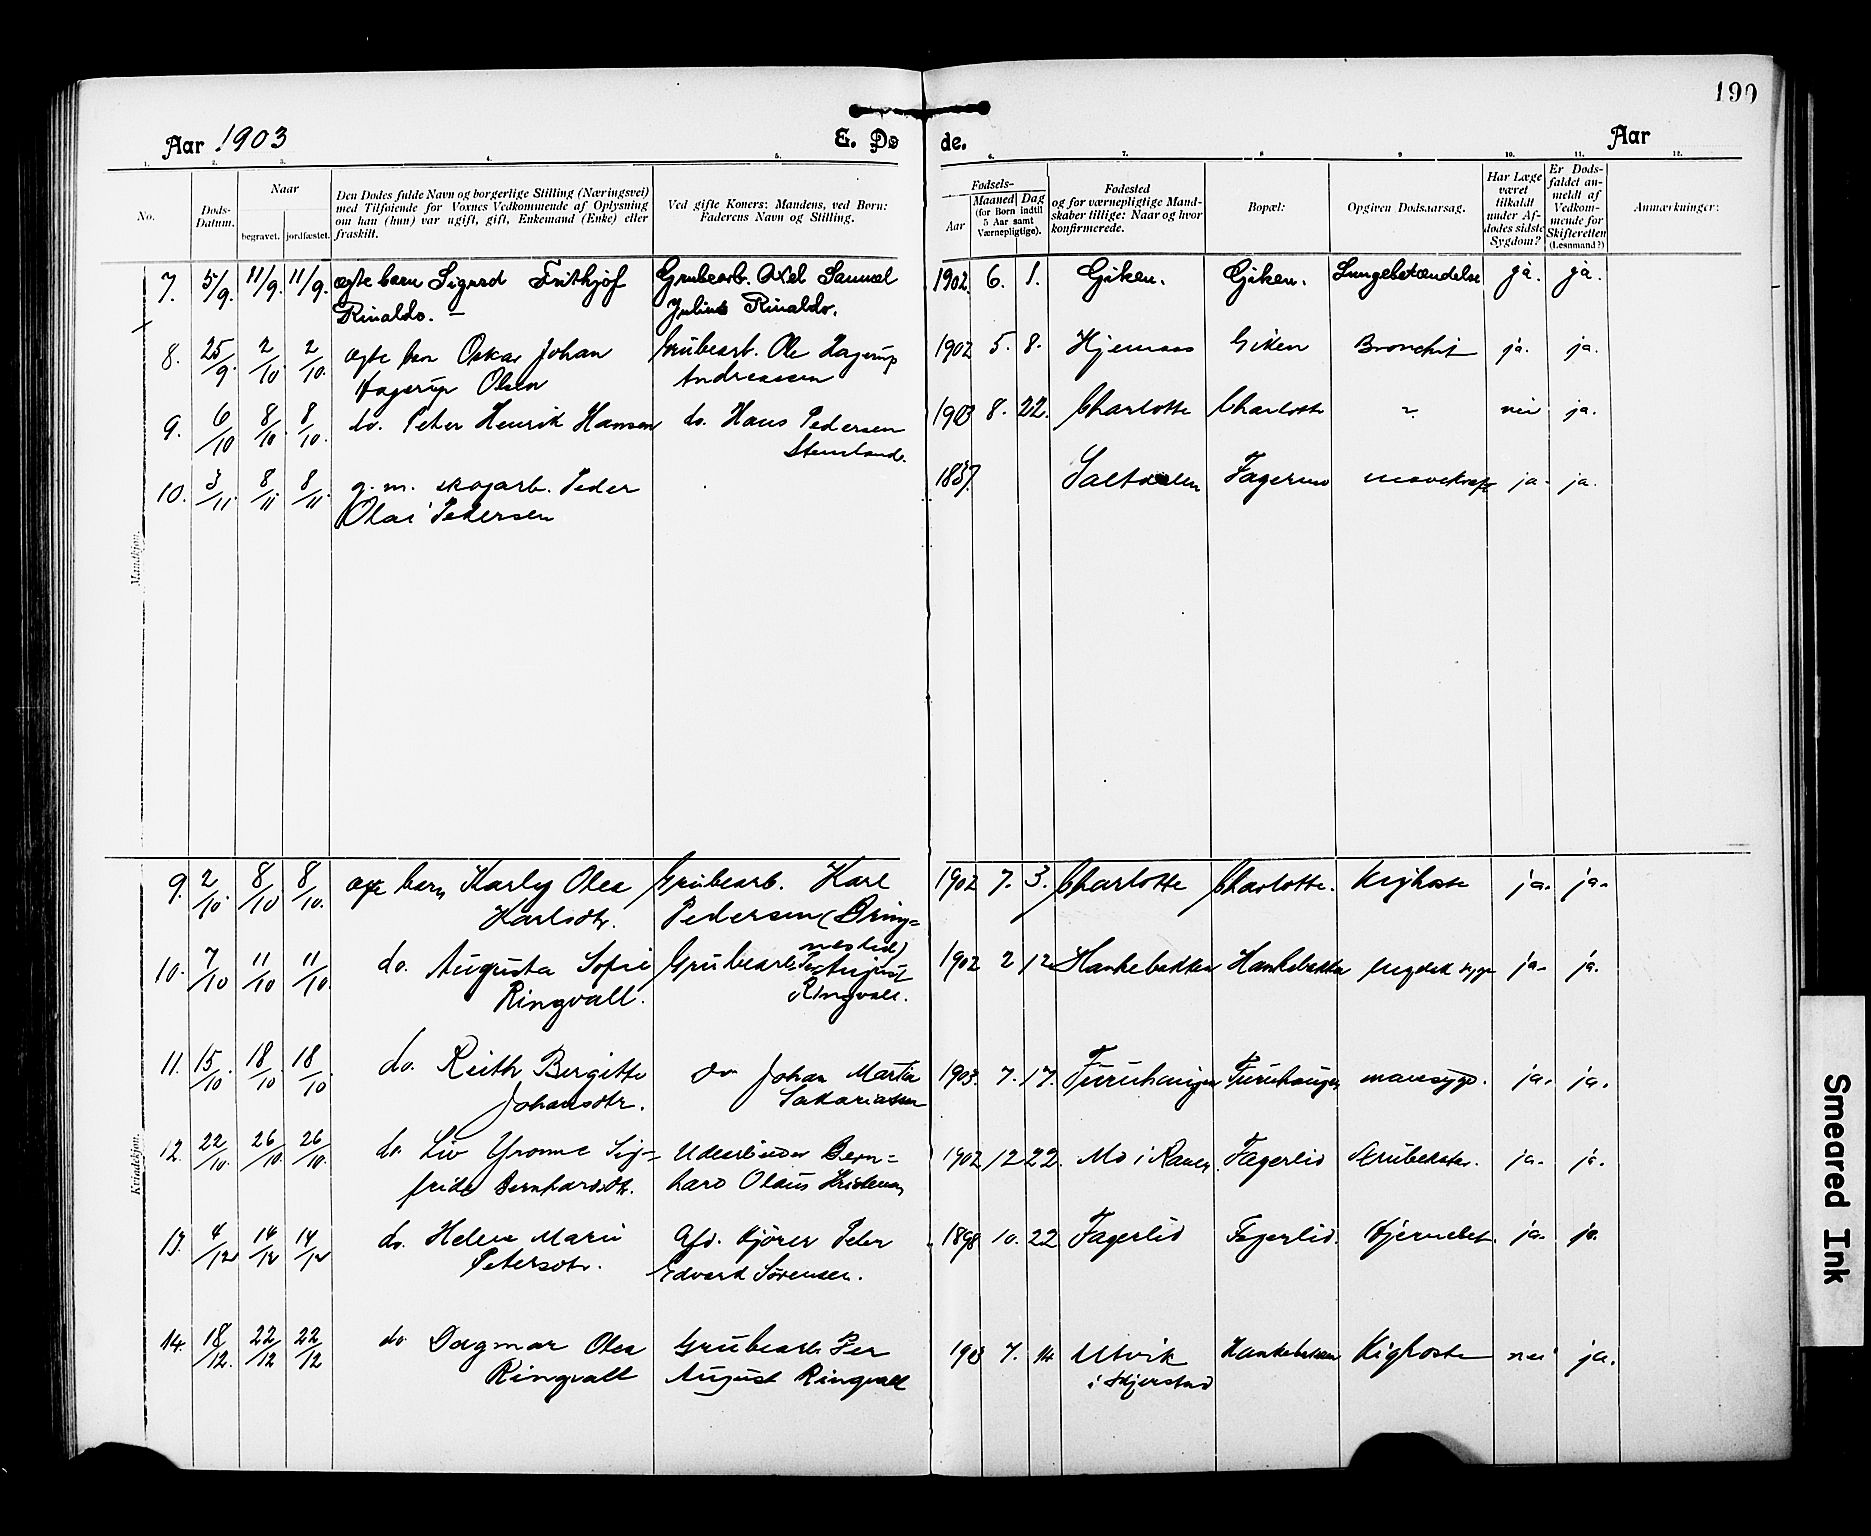 199
Aar 1903
E. Dø
de.
Aar
1. 2. 3. 4. 5. 6. 7. 8 9 10. 11. 12.
No.
Døds-Datum.
Naar
begravet. jordfæstet.
Den Dødes fulde Navn og borgerlige Stilling (Næringsvei)
med Tilføiende for Voxnes Vedkommende af Oplysning
om han (hun) var ugift, gift, Enkemand (Enke) eller
fraskilt.
Ved gifte Koner: Mandens, ved Børn:
Faderens Navn og Stilling.
Fødsels-
Aar
Maaned Dag
(for Børn indtil
5 Aar samt
Værnepligtige).
Fødested
og for værnepligtige Mand-
skaber tillige: Naar og hvor
konfirmerede.
Bopæl:
Opgiven Dødsaarsag.
Har Læge
været
tilkaldt
under Af-
dødes sidste
Sygdom?
Er Døds-
faldet an-
meldt af
Vedkom-
mende for
Skifteretten
(Lesnmand?)
Anmærkninger:
Mandkjøn.
7. 5/9. 11/9. 11/9. ægte barn Sigurd Frithjof Grubearb. Axel Samuel 1902. 6. 1. Giken. Giken. Lungebetændelse ja. ja.
Rinaldo. — Julius Rinaldo.
8. 25/9 2/10. 2/10. ægte Oskar Johan Grubearb. Ole Hagerup 1902 5. 8. Hjemaas Giken Bronchit ja. ja.
Hagerup Olsen Andreassen
9. 6/10 8/10. 8/10. do. Peter Henrik Hansen do. Hans Pedersen 1903 8. 22. Charlotte Charlotte ? nei ja.
Stemland.
10. 3/11. 8/11 8/11 g. m. skogarb. Peder 1837. Saltdalen Fagermo mavekræft ja. ja.
Olai Pedersen
Kvindekjøn.
9. 2/10. 8/10 8/10. ægte barn Karly Olea Grubearb. Karl 1902 7. 3. Charlotte Charlotte. Kighoste ja. ja.
Karlsdtr. Pedersen (Bring-
neslid)
10. 7/10 11/10 11/10. do. Augusta Sofie Grubearb. Per August 1902 2 12 Hankebakken Hankebakken ja. ja.
Ringvall. Ringvall.
11. 15/10. 18/10 18/10. do. Ruth Bergitte do. Johan Martin 1903. 7. 17. Furuhaugen Furuhaugen mavesygd. ja. ja.
Johansdtr. Sakariassen
12. 22/10. 26/10. 26/10. do. Liv Yvonne Sig- Bern- 1902 12 22. Mo i Ranen. Fagerlid ja. ja.
fride Bernhardsdtr. hard Olaus Kristensen
13. 4/12 14/12 14/12 do. Helene Marie Peter 1898 10. 22 Fagerlid Fagerlid. Hjernebet. ja. ja.
Petersdtr. Edvard Sørensen.
14. 18/12. 22/12 22/12 do Dagmar Olea Grubearb. Per 1903 7. 14 Utvik Hankebakken Kighoste nei ja.
Ringvall August Ringvall
Smeared Ink